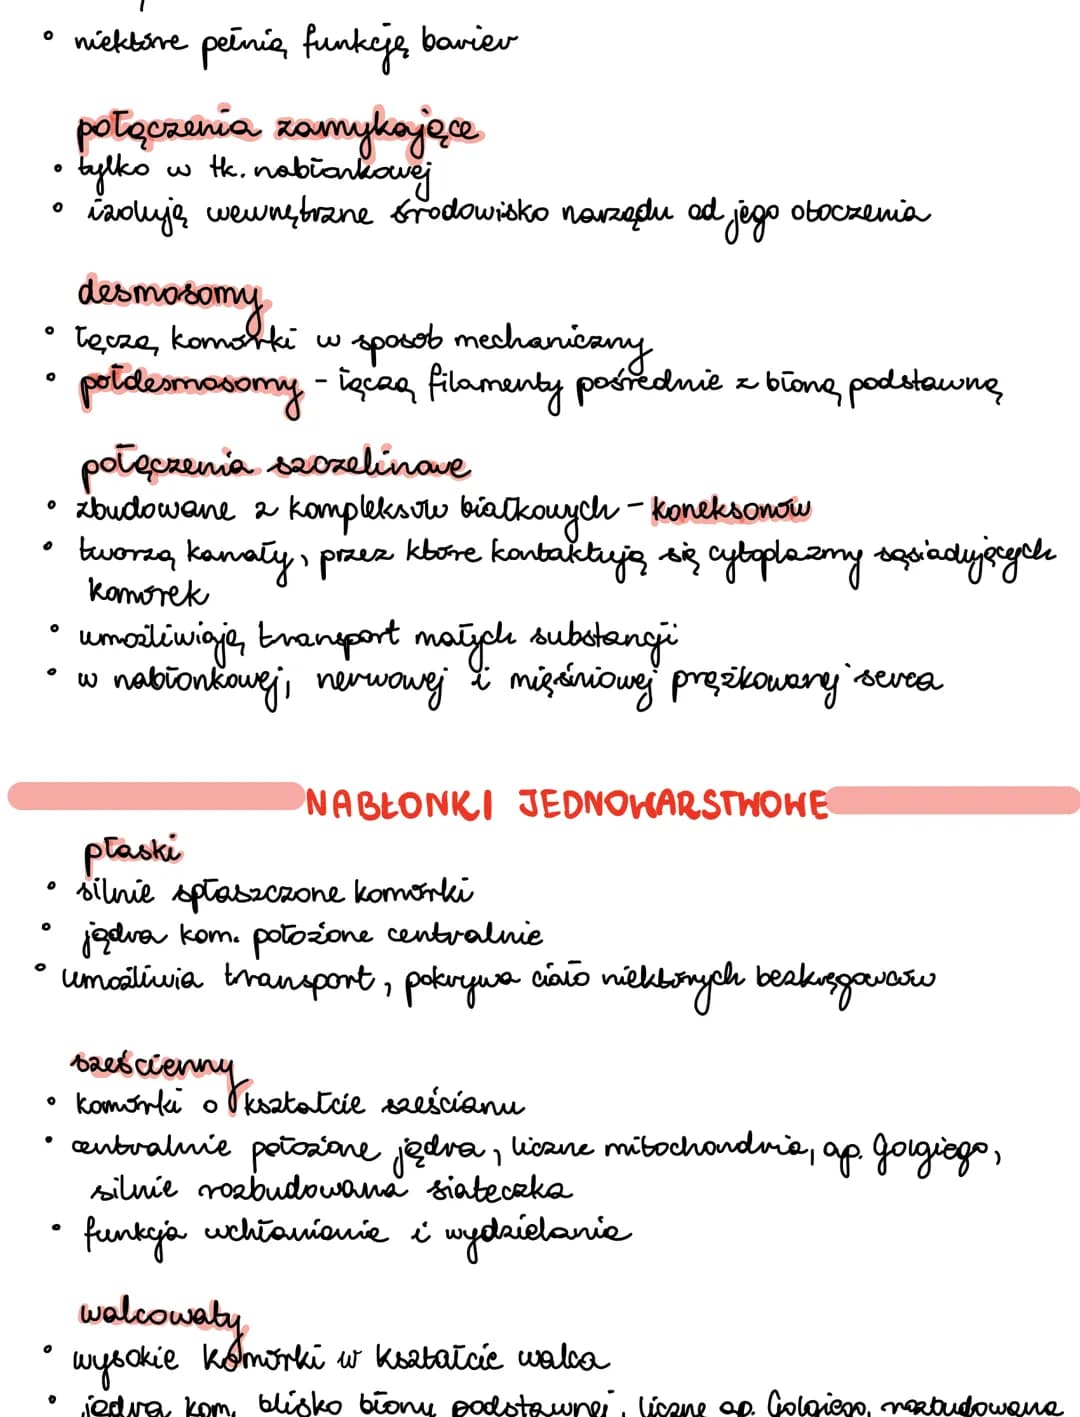 • niektóre pełnią funkcję barier
połączenia zamykające
• tylko w tk. nabłonkowej
• izolują wewnętrzne środowisko narządu od jego otoczenia
desmosomy
• łączą komórki w sposób mechaniczny
• półdesmosomy - łączą filamenty pośrednie z błoną podstawną
połączenia szczelinowe
• zbudowane z kompleksów białkowych - koneksonów
• tworzą kanały, przez które kontaktują się cytoplazmy sąsiadujących
komórek
• umożliwiają transport małych substancji
• w nabłonkowej, nerwowej i mięśniowej prążkowanej serca
NABŁONKI JEDNOWARSTWOWE
płaski
• silnie spłaszczone komórki
• jądra kom. położone centralnie
• umożliwia transport, pokrywa ciało niektórych bezkręgowców
sześcienny
• komórki o kształcie sześcianu
• centralnie położone jądra, liczne mitochondria, ap. Golgiego,
silnie rozbudowana siateczka
• funkcja wchłaniania i wydzielania
walcowaty
• wysokie komórki w kształcie walca
• jądra kom. blisko błony podstawnej, liczne ap. Golgiego, rozbudowana